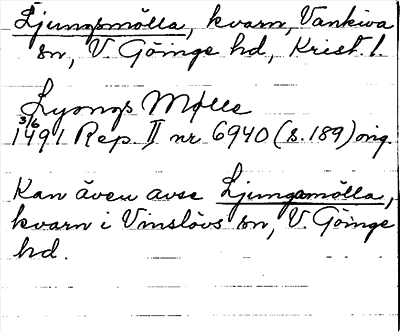 Ljungamölla, kvarn, Vankiva
sn, V. Göinge hd, Krist. l.
Lyongs Mølle
3/6
1491 Rep. II nr 6940 (s. 189) orig.
Kan även avse Ljungamölla,
kvarn i Vinslövs sn, V. Göinge
hd.